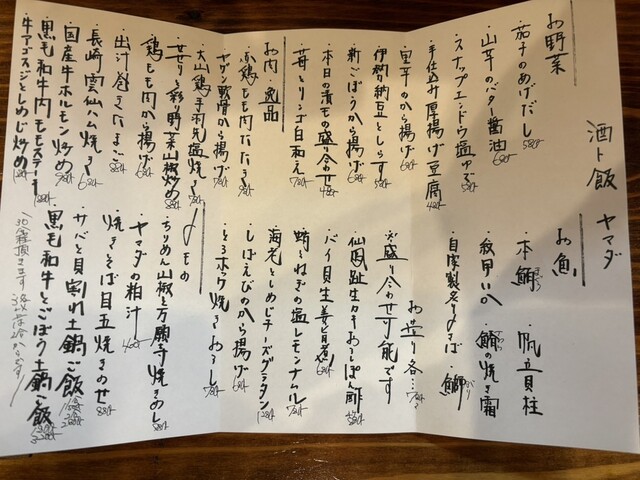 酒ト飯 ヤマダ
お野菜
・茄子のあげだし 580
・山芋のバター醤油 680
・スナップエンドウ塩ゆで 580
・手仕込み厚揚げ豆腐 480
・里芋のから揚げ 680
・伊勢納豆としらす 580
・新ごぼうから揚げ 680
・本日の漬モの盛合わせ 480
・苺とリンゴ白和え 780
お肉 逸品
・鶏もも肉たたき 780
・ヤゲン軟骨から揚げ 780
・大山鶏手羽先塩焼き 780
・せせりと彩り野菜山椒炒め 880
・鶏もも肉から揚げ 680
・出汁巻きたまご 880
・長崎雲仙ハム焼き 680
・国産牛ホルモン炒め 780
・黒毛和牛内モモステーキ
・牛アゴスジとしめじ炒め
お魚
・本鮪 ・帆立貝柱
・紋甲いか ・鯛の焼き霜
・自家製炙り〆さば ・鰤
お造り各…780
※盛り合わせ可能です
・仙鳳趾生カキおろしぽん酢 880
・バイ貝生姜旨煮 680
・蛸とねぎの塩レモンナムル 780
・海老としめじチーズグラタン 1280
・しばえびのから揚げ 680
・とろホッケ焼き おろし 780
〆もの
・ちりめん山椒と万願寺焼きめし 880
・ヤマダの粕汁 480
・焼きそば目玉焼きのせ 880
・サバと貝割れ土鍋ご飯
・黒毛和牛とごぼう土鍋ご飯